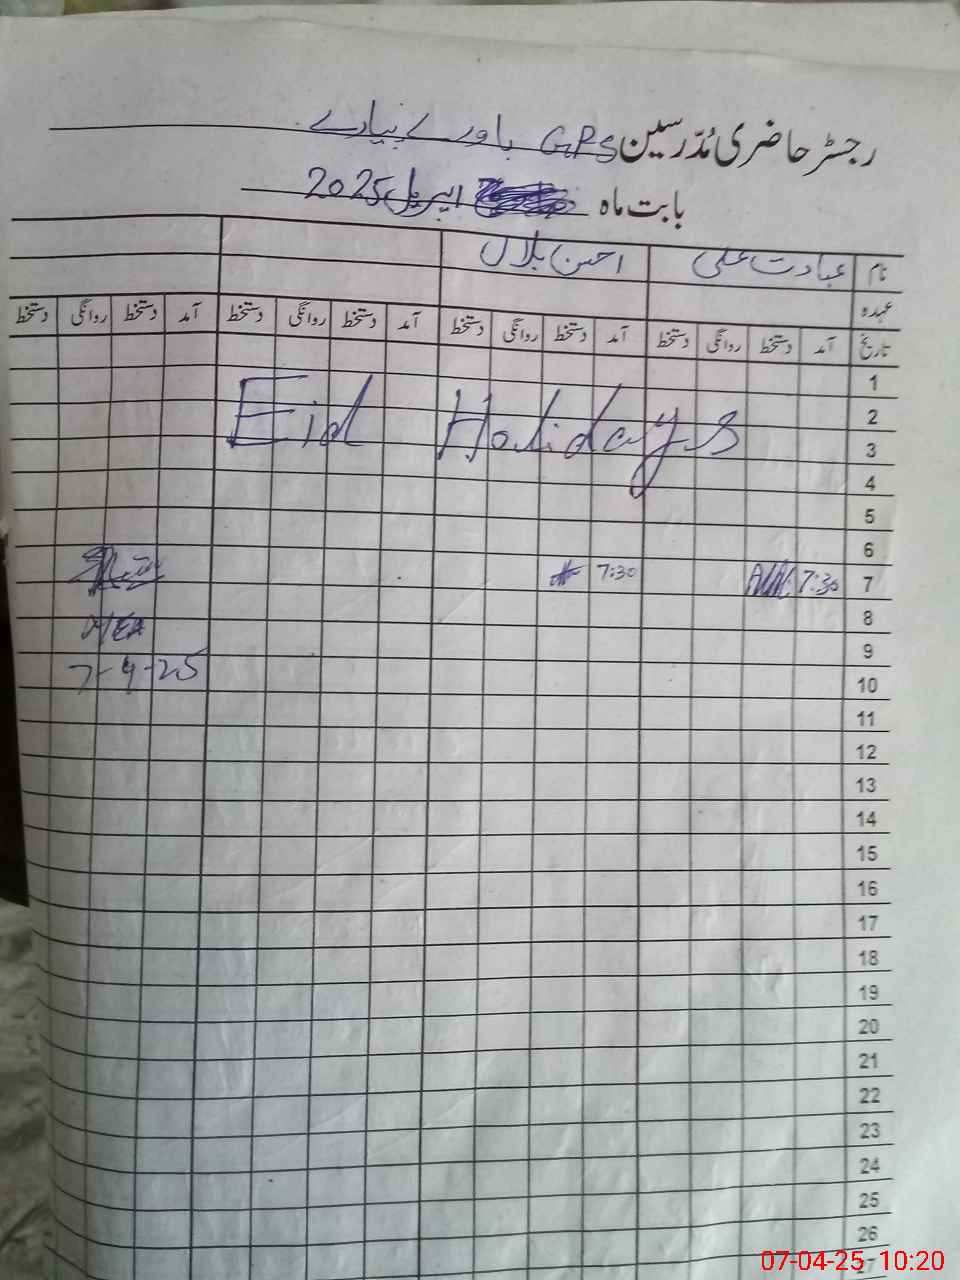 رجسٹر حاضری مُدّرسین GPS باورے پیادے
بابت ماہ اپریل 2025
نام عبادت علی احسن بلال
عہدہ
تاریخ آمد دستخط روانگی دستخط آمد دستخط روانگی دستخط آمد دستخط روانگی دستخط آمد دستخط روانگی دستخط
1
2
Eid Holidays
3
4
5
6
7 7:30 7:30
8
9
7-4-25
10
11
12
13
14
15
16
17
18
19
20
21
22
23
24
25
26
27
07-04-25 10:20